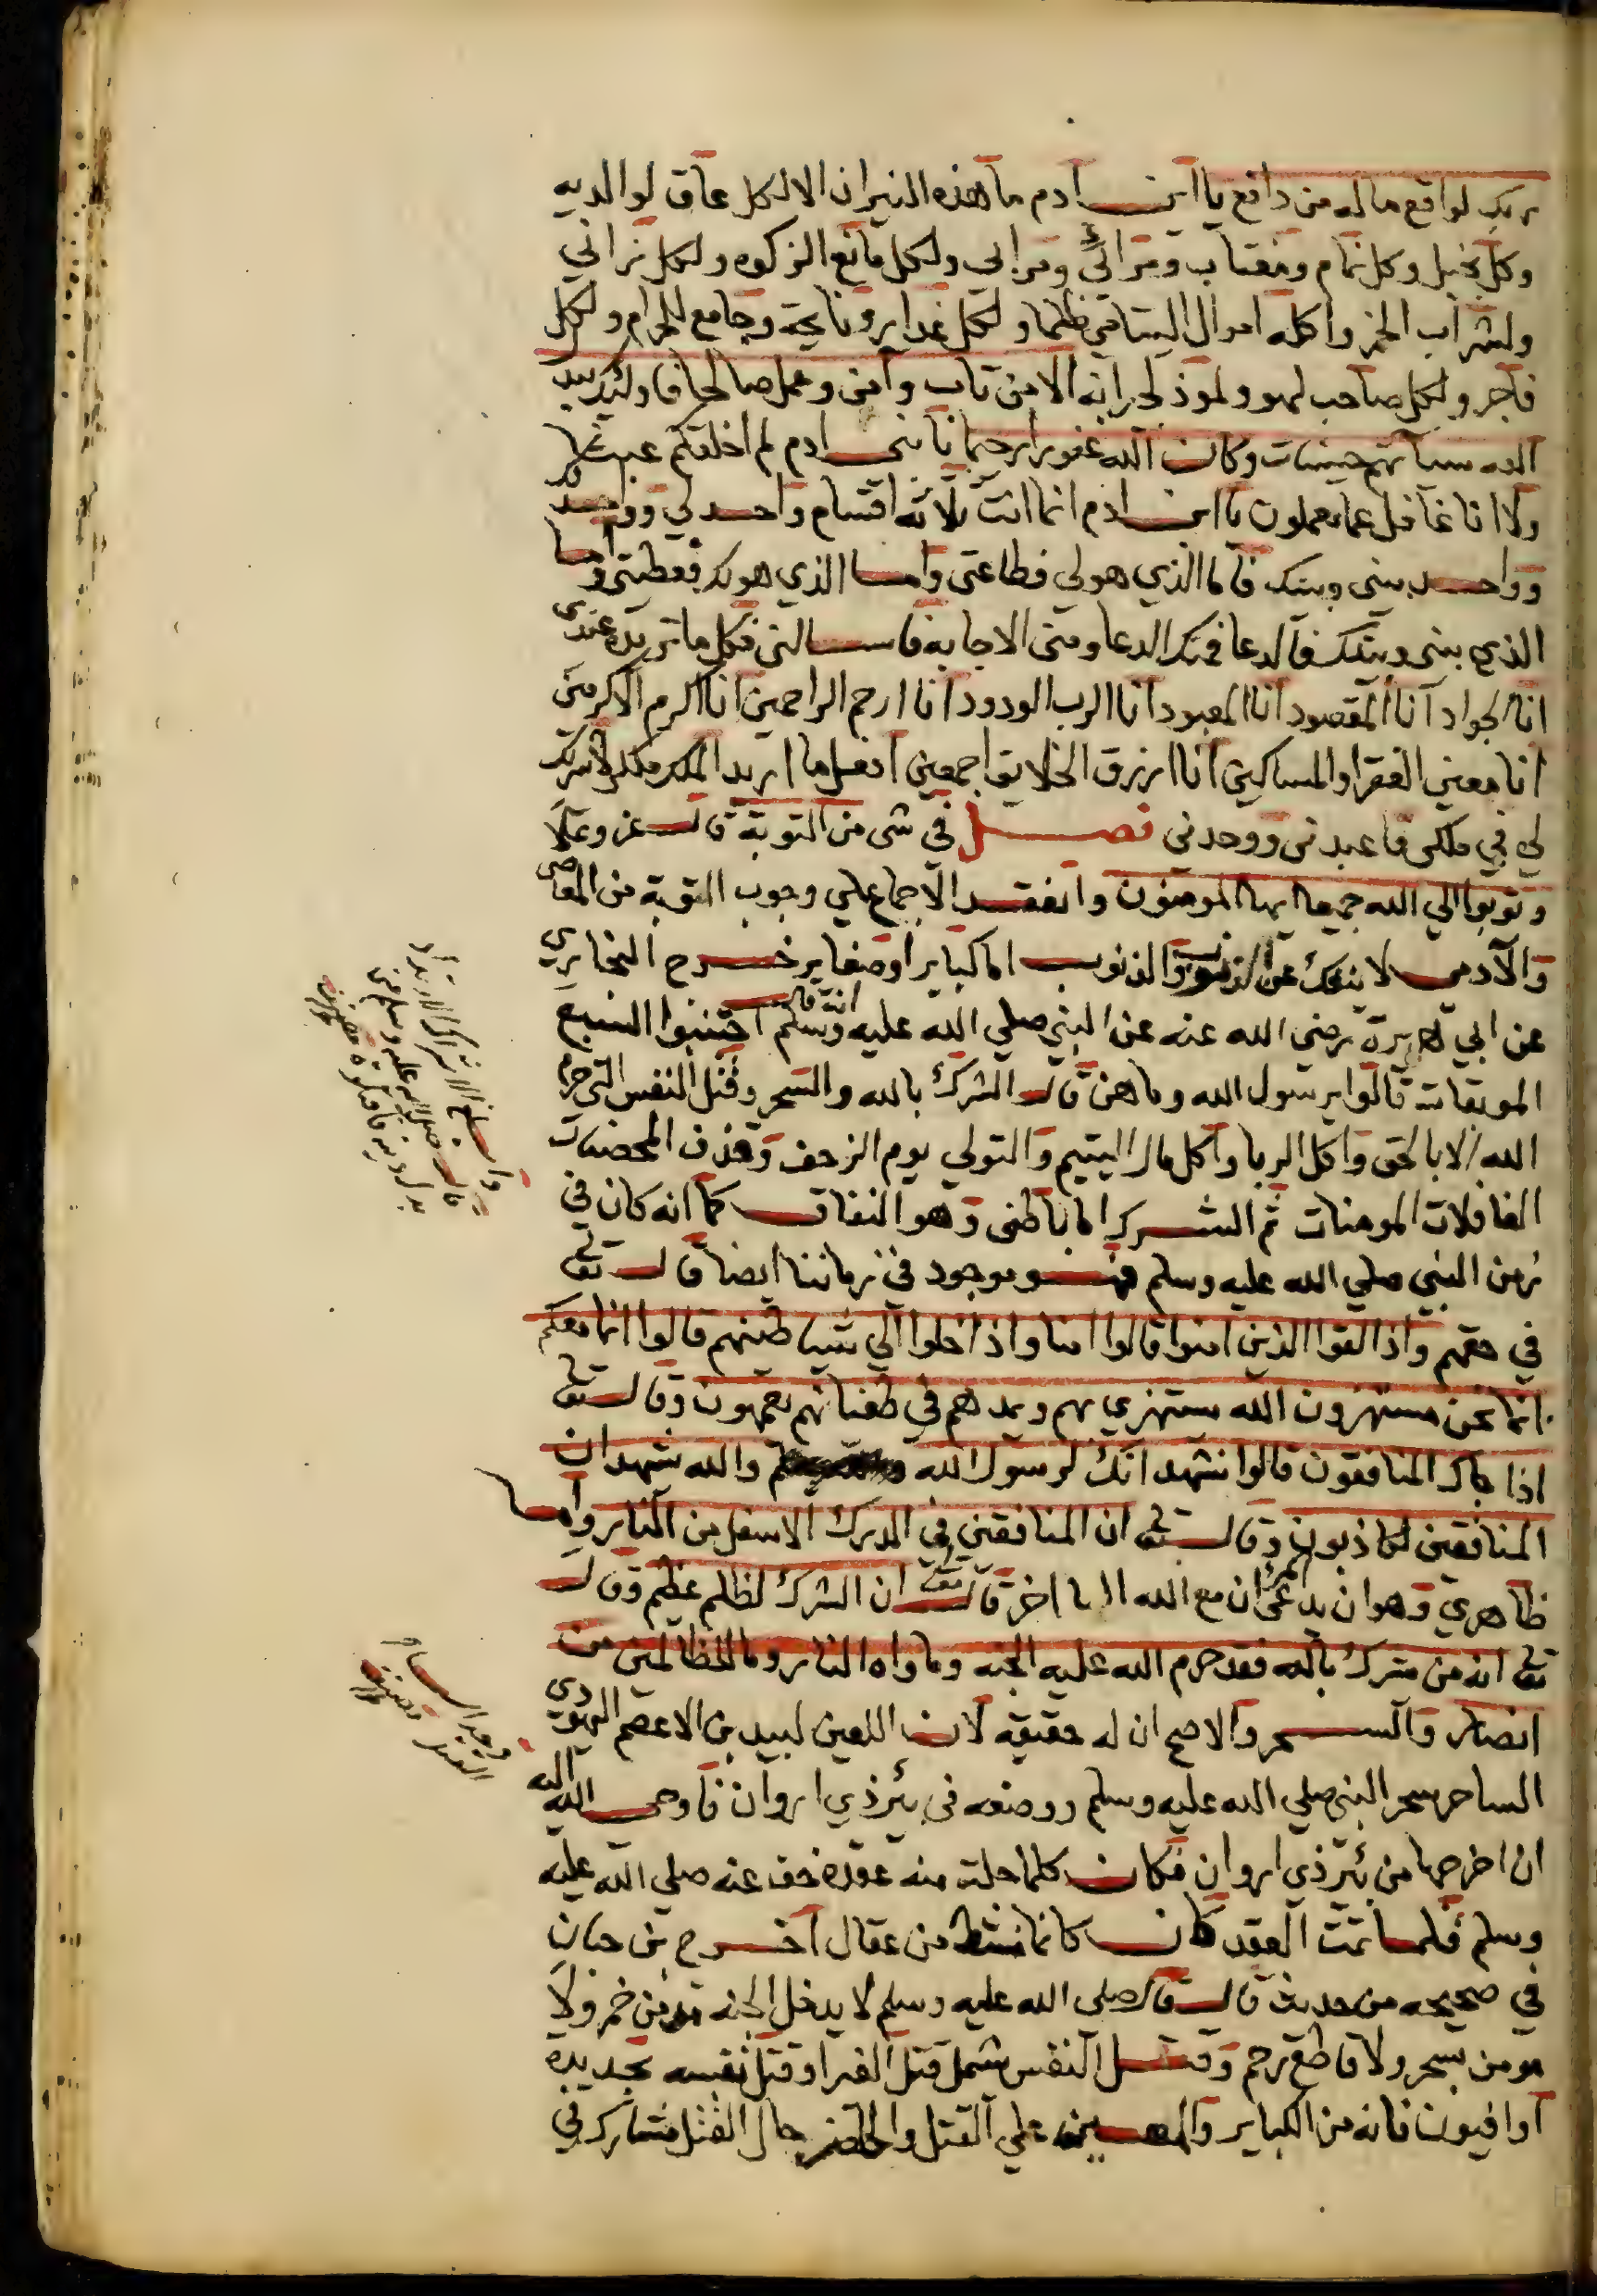 ربك لواقع ماله من دافع يا ابن ادم ما هذه النيران الا لكل عاق لوالديه
وكل بخيل وكل نمام ومغتاب ومرائي ولكل مانع الزكوه ولكل زاني
ولشراب الخمر واكله اموال اليتامي ظلما ولكل غدار ونايحة وجامع للحرام ولكل
فاجر ولكل صاحب لهو وموذ لجرانه الا من تاب وآمن وعمل صالحا فاوليك يبدل
الله سيآتهم حسنات وكان الله غفورا رحيما يا بني ادم لم اخلقكم عبثا
ولا انا غافل عما تعملون يا ابن ادم انما انت ثلاثه اقسام واحد لي وواحد لك
وواحد بيني وبينك فاما الذي هو لي فطاعتي واما الذي هو لك فعطيتي واما
الذي بيني وبينك فالدعا فمنك الدعا ومني الاجابه فاسالني فكل ما تريده عندي
انا الجواد انا المقصود انا المعبود انا الرب الودود انا ارحم الراحمين انا اكرم الاكرمين
انا معين الفقرا والمساكين انا ارزق الخلايق اجمعين افعل ما اريد الملك ملكي لا شريك
لي في ملكي فاعبدني ووحدني فصل في شي من التوبة قال عز وعلا
وتوبوا الي الله جميعا ايها المومنون وانعقد الاجماع علي وجوب التوبة من المعاصي
والآدمي لا ينفك عن الذنوب والذنوب اما كباير او صغاير خرج البخاري
عن ابي هريرة رضي الله عنه عن النبي صلي الله عليه وسلم انه قال اجتنبوا السبع
الموبقات قالوا يرسول الله وما هن قال الشرك بالله والسحر وقتل النفس التي حرم
الله الا بالحق واكل الربا واكل مال اليتيم والتولي يوم الزحف وقذف المحصنات
الغافلات المومنات ثم الشرك اما باطني وهو النفاق كما انه كان في
زمن النبي صلي الله عليه وسلم فهو موجود في زماننا ايضا قال تعالي
في حقهم واذا لقوا الذين امنوا قالوا امنا واذا خلوا الي شياطينهم قالوا انا معكم
انما نحن مستهزون الله يستهزي بهم ويمدهم في طغيانهم يعمهون وقال تعالي
اذا جاك المنافقون قالوا نشهد انك لرسول الله والله يشهد ان
المنافقين لكاذبون وقال تعالي ان المنافقين في الدرك الاسفل من النار واما
ظاهري وهو ان يدعي ان مع الله الاها اخر قال تعالي ان الشرك لظلم عظيم وقال
تعالي انه من يشرك بالله فقد حرم الله عليه الجنه وماواه النار وما للظالمين من
انصار والسحر والاصح ان له حقيقه لان اللعين لبيد بن الاعصم اليهودي
الساحر سحر النبي صلي الله عليه وسلم ووضعه في بئر ذي اروان فاوحي الله اليه
ان اخرجها من بئر ذي اروان فكان كلما حلت منه عقده خف عنه صلي الله عليه
وسلم فلما تمت العقد كان كانما نشط من عقال اخرج بن حبان
في صحيحه من حديث قال قال صلي الله عليه وسلم لا يدخل الجنه مدمن خمر ولا
مومن بسحر ولا قاطع رحم وقتل النفس يشمل قتل الغير او قتل نفسه بحديده
او افيون فانه من الكباير والمعين علي القتل والحاضر حال القتل مشارك في